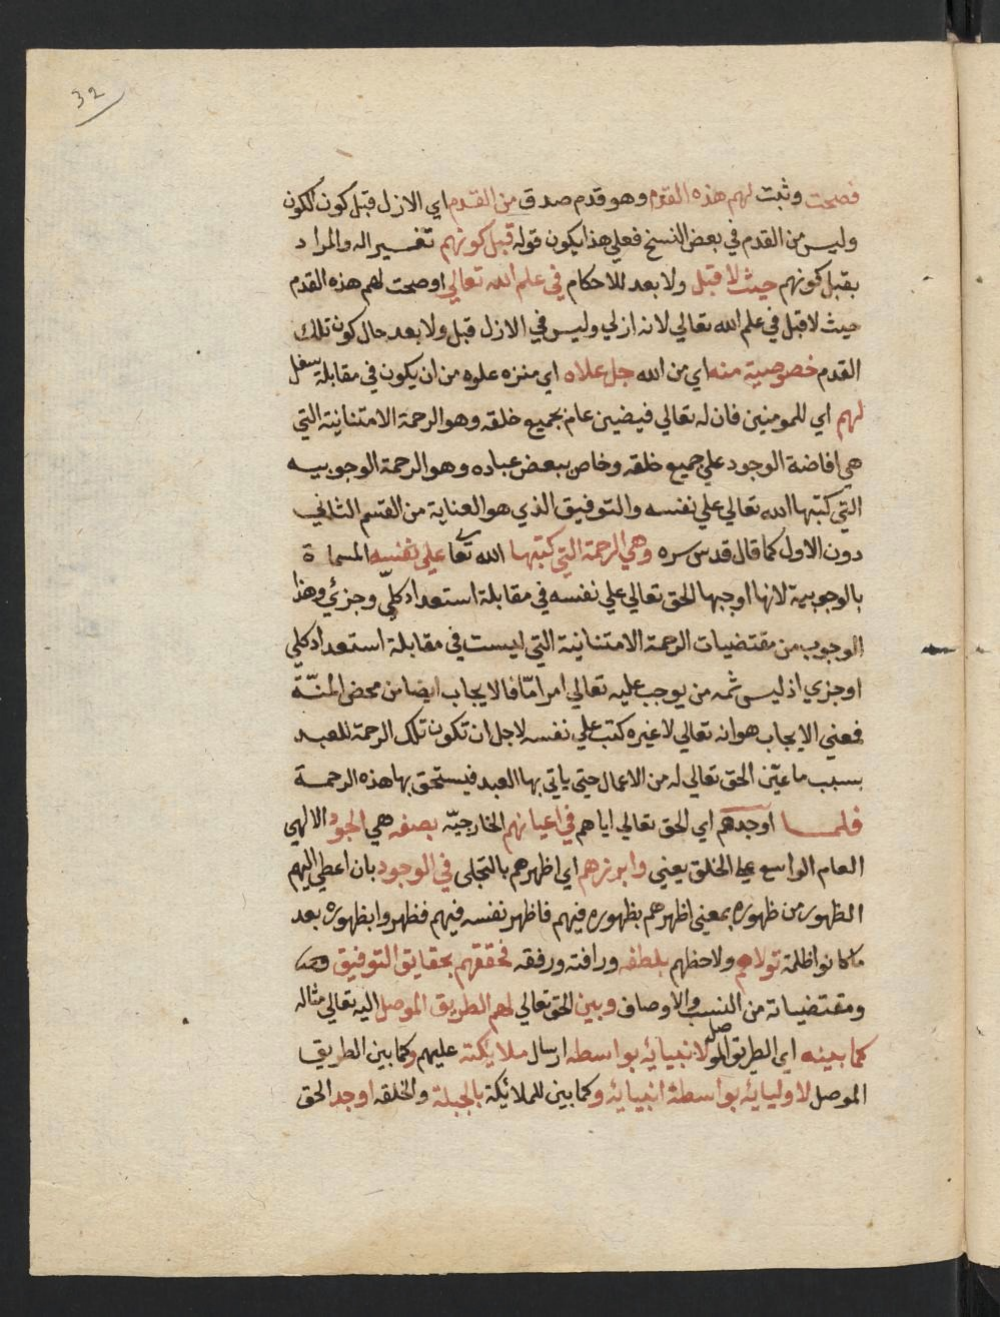 32
فصحت وثبت لهم هذه القدم وهو قدم صدق من القدم اي الازل قبل كون الكون
وليس من القدم في بعض النسخ فعلي هذا يكون قوله قبل كونهم تفسير اله والمراد
بقبل كونهم حيث لا قبل ولا بعد للاحكام في علم الله تعالي اوصحت لهم هذه القدم
حيث لا قبل في علم الله تعالي لانه ازلي وليس في الازل قبل ولا بعد حال كون تلك
القدم خصوصية منه اي من الله جل علاه اي منزه علوه من ان يكون في مقابلة سفل
لهم اي للمومنين فان له تعالي فيضين عام بجميع خلقه وهو الرحمة الامتنانية التي
هي افاضة الوجود علي جميع خلقه وخاص ببعض عباده وهو الرحمة الوجوبيه
التي كتبها الله تعالي علي نفسه والتوفيق الذي هو العناية من القسم الثاني
دون الاول كما قال قدس سره وهي الرحمة التي كتبها الله تعا علي نفسه المسماة
بالوجوبية لانها اوجبها الحق تعالي علي نفسه في مقابلة استعداد كلّي وجزئي وهذا
الوجوب من مقتضيات الرحمة الامتنانية التي ليست في مقابلة استعداد كلي
اوجزي اذ ليس ثمه من يوجب عليه تعالي امرا مّا فالايجاب ايضا من محض المنّة
فعني الايجاب هوانه تعالي لاغيره كتب علي نفسه لاجل ان تكون تلك الرحمة للعبد
بسبب ما عيّن الحق تعالي له من الاعمال حتي ياتي بها العبد فيستحق بها هذه الرحمة
فلما اوجدهم اي الحق تعالي اياهم في اعيانهم الخارجيّه بصفه هي الجود الالهي
العام الواسع علي الخلق يعني وابرزهم اي اظهرهم بالتجلي في الوجود بان اعطي اليهم
الظهور من ظهوره بمعني اظهرهم بظهوره فيهم فاظهر نفسه فيهم فظهروا بظهوره بعد
ما كانوا ظلمة تولاهم ولاحظهم بلطفه ورافته ورفقه فحققهم بحقايق التوفيق
ومقتضياته من النسب والاوصاف وبين الحق تعالي لهم الطريق الموصل اليه تعالي مثاله
كما بينه اي الطريق الموصل لانبيائه بواسطه ارسال ملائكته عليهم وكما بين الطريق
الموصل لاوليائه بواسطة انبيائه وكما بين للملائكة بالجبلة والخلقه اوجد الحق